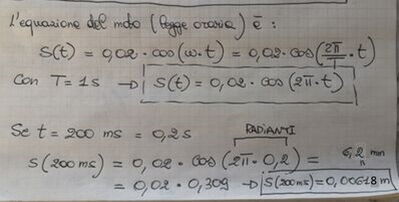 L'equazione del moto (legge oraria) è:
S(t) = 0,02 · cos(ω·t) = 0,02 · cos(2π/T · t)
Con T=1s → S(t) = 0,02 · cos(2π·t)
Se t = 200 ms = 0,2s
RADIANTI
S(200ms) = 0,02 · cos(2π·0,2) =
= 0,02 · 0,309 → S(200ms)=0,00618m